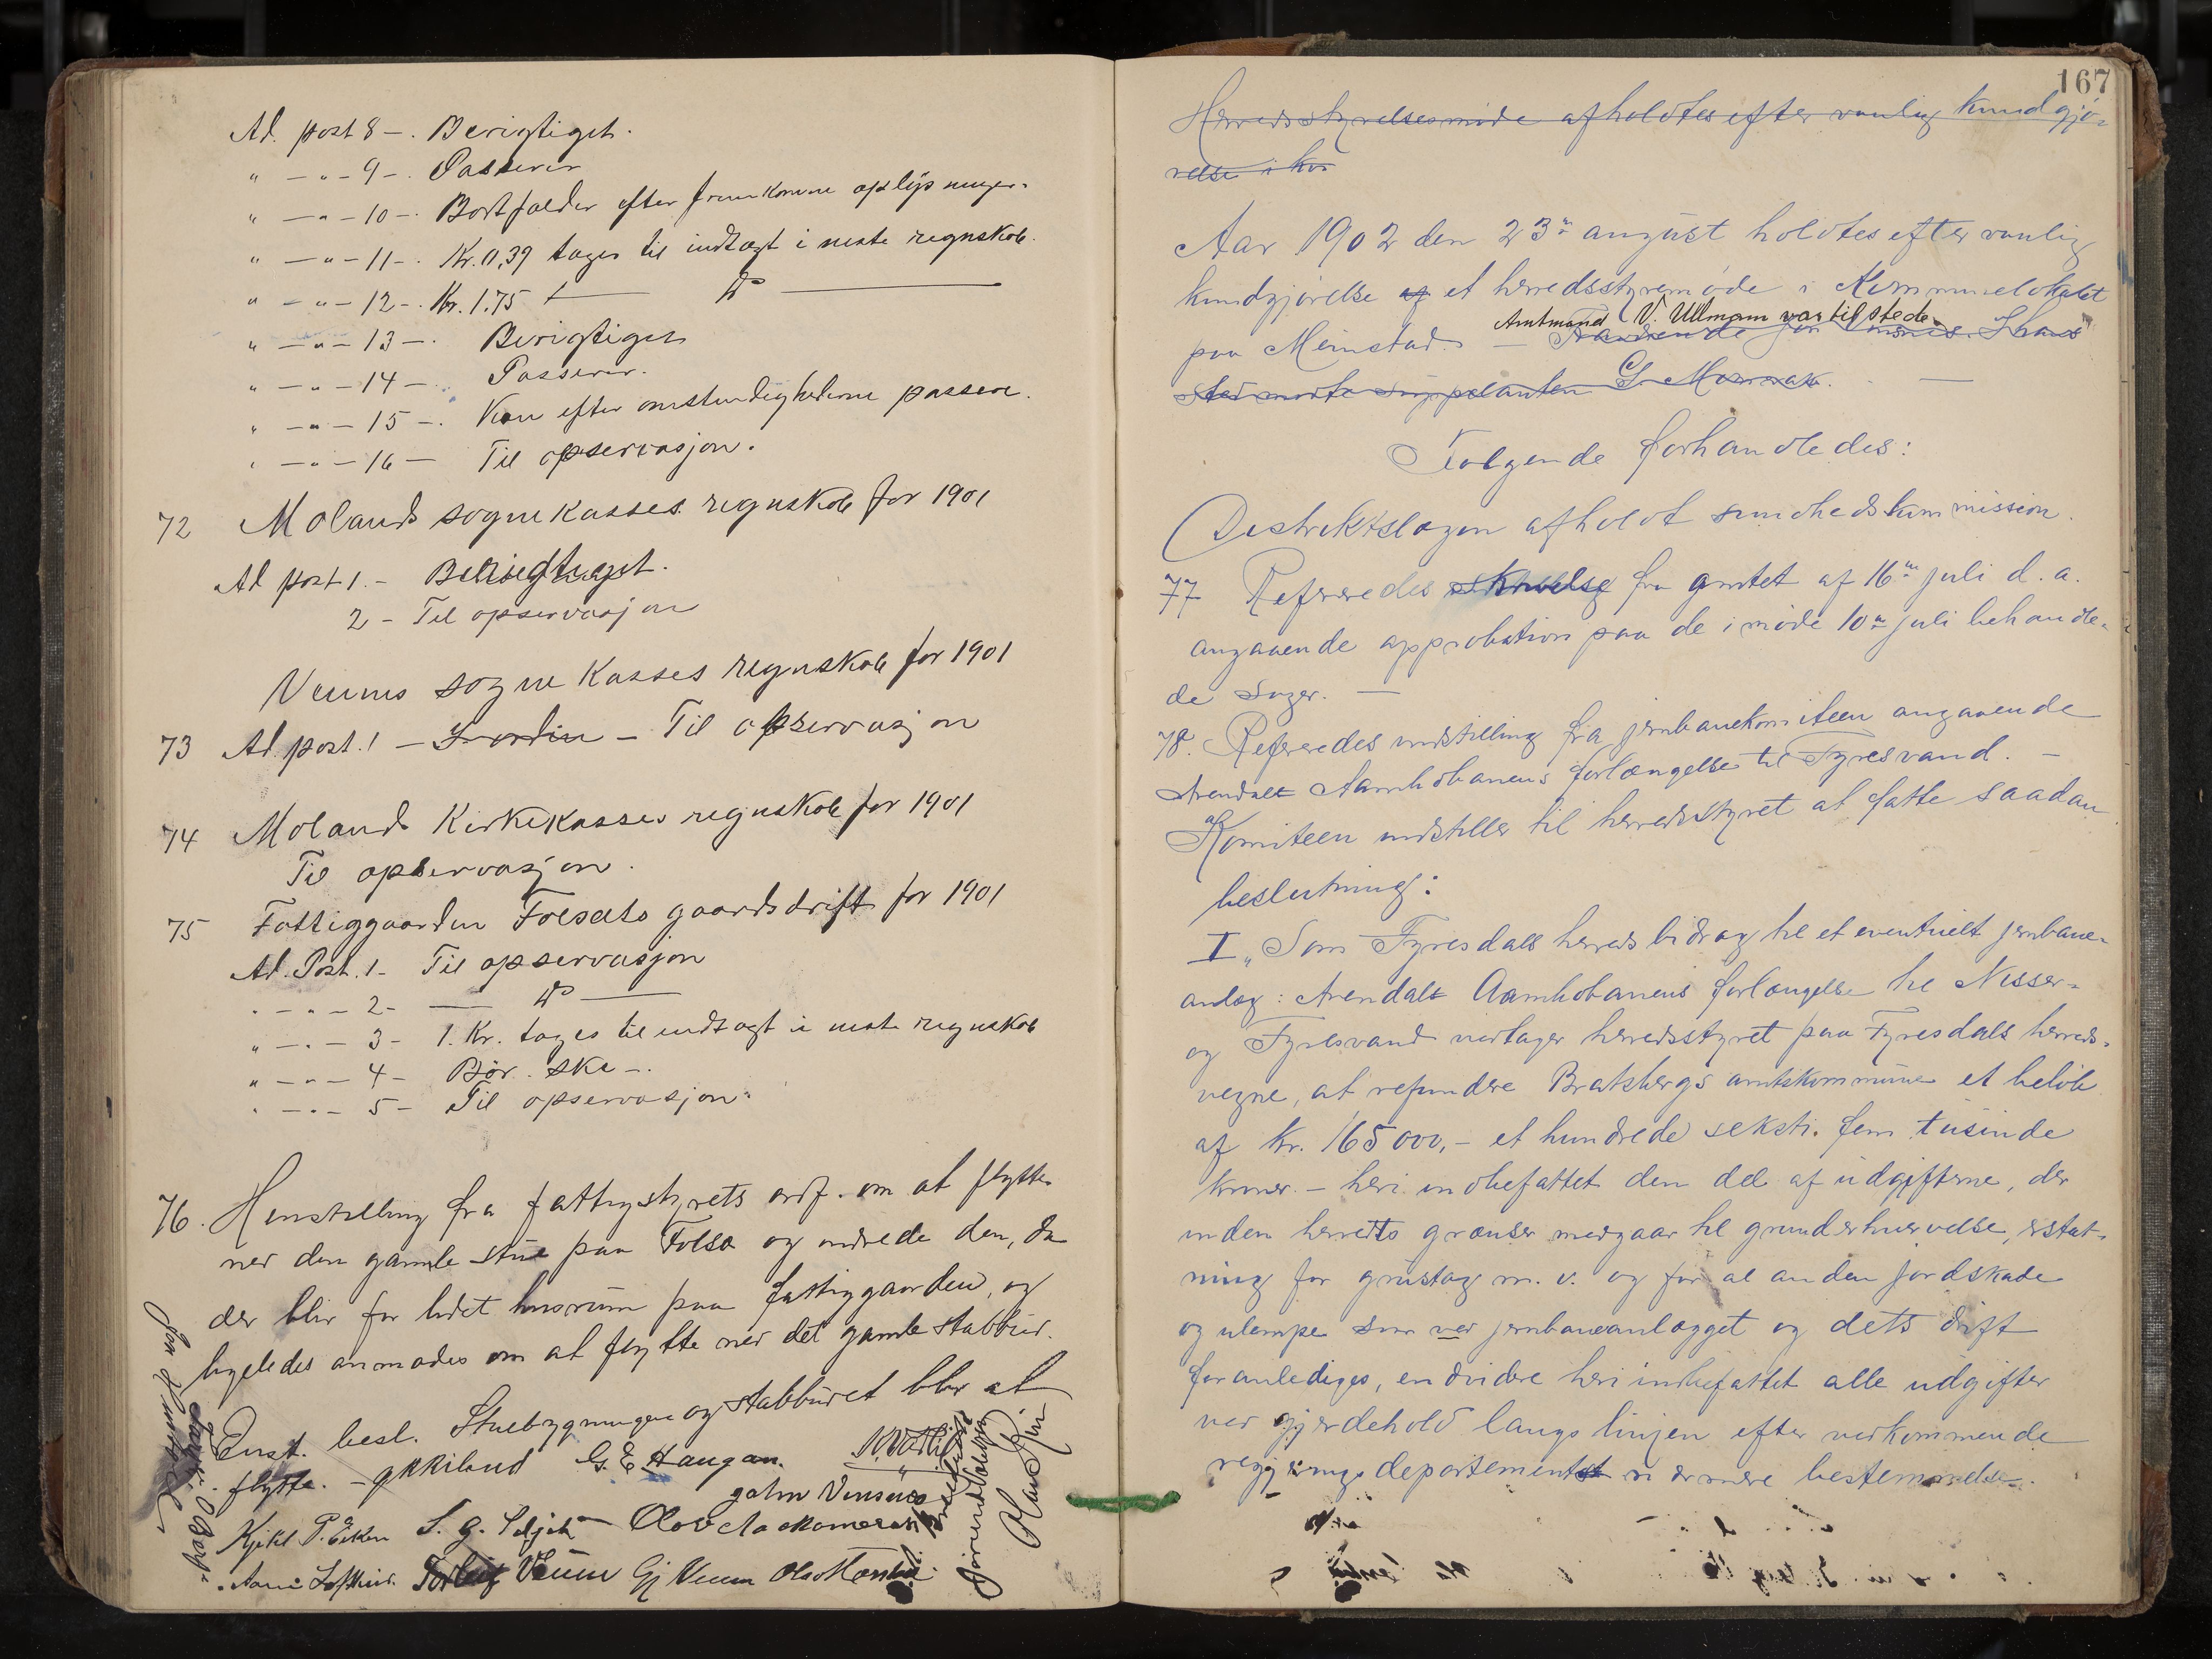 Ad. post 8 -. Berigtiget.
" - " - 9 -. Passerer
" - " - 10 -. Bortfalder efter fremkomne oplysninger.
" - " - 11 -. Kr. 0,39 tages til indtægt i neste regnskab.
" - " - 12 -. Kr. 1.75 — do —
" - " - 13 -. Berigtiges
" - " - 14 - Passerer.
" - " - 15 -. Kan efter omstendighederne passere.
" - " - 16 - Til opservasjon.
72 Molands sognekasses regnskab for 1901
Ad post 1. - Berigtiget.
2 - Til opservasjon
Veums sognekasses regnskab for 1901
73 Ad. post. 1 - - Til opservasjon
74 Molands Kirkekasses regnskab for 1901
Til opservasjon.
75 Fattiggaarden Folsæts gaardsdrift for 1901
Ad. Post. 1 - Til opservasjon
" - " - 2 - — do —
" - " - 3 - 1. Kr. tages til indtægt i neste regnskab
" - " - 4 - Bør ske -.
" - " - 5 - Til opservasjon.
76. Henstilling fra fattigstyrets ordf. om at flytte
ned den gamle stue paa Folsæ og indrede den, da
der blir for lidet husrum paa fattiggaarden, og
ligeledes anmodes om at flytte ned det gamle stabbur.
Enst. besl. Stuebygningen og stabburet blir at
flytte. - G. E Haugan.
Kjetil P. Eiken
Torleif Veum Gj Veum
167
Herredsstyrelsesmøde afholdtes efter vanlig kundgjø-
relse i kom
Aar 1902 den 23de august holdtes efter vanlig
kundgjørelse af et herredsstyremøde i Kommunelokalet
Amtmand V. Ullmann var tilstede.
paa Meinstad. -
sted mødte supplanten
Følgende forhandledes:
Distriktslægen afholdt sundhedskommission.
77 Refereredes skrivelse fra amtet af 16de juli d. a.
angaaende approbation paa de i møde 10de juli behandle-
de sager. -
78. Refereredes indstilling fra jernbanekomiteen angaaende
Arendals Aamlibanens forlængelse til Fyresvand. -
Komiteen indstiller til herredsstyret at fatte saadan
beslutning:
I "Som Fyresdals herreds bidrag til et eventuelt jernbane-
anlæg: Arendals Aamlibanens forlængelse til Nisser-
og Fyresvand vedtager herredsstyret paa Fyresdals herreds
vegne, at refundere Bratsbergs amtskommune et beløb
af Kr. 165000,- et hundrede seksti fem tusinde
kroner. - heri indbefattet den del af udgifterne, der
inden herredts grænser medgaar til grunderhvervelse, erstat-
ning for grustag m. v. og for al anden jordskade
og ulempe som ved jernbaneanlægget og dets drift
foranlediges, endvidere heri indbefattet alle udgifter
ved gjerdehold langs linjen efter vedkommende
regjeringsdepartements nærmere bestemmelse.